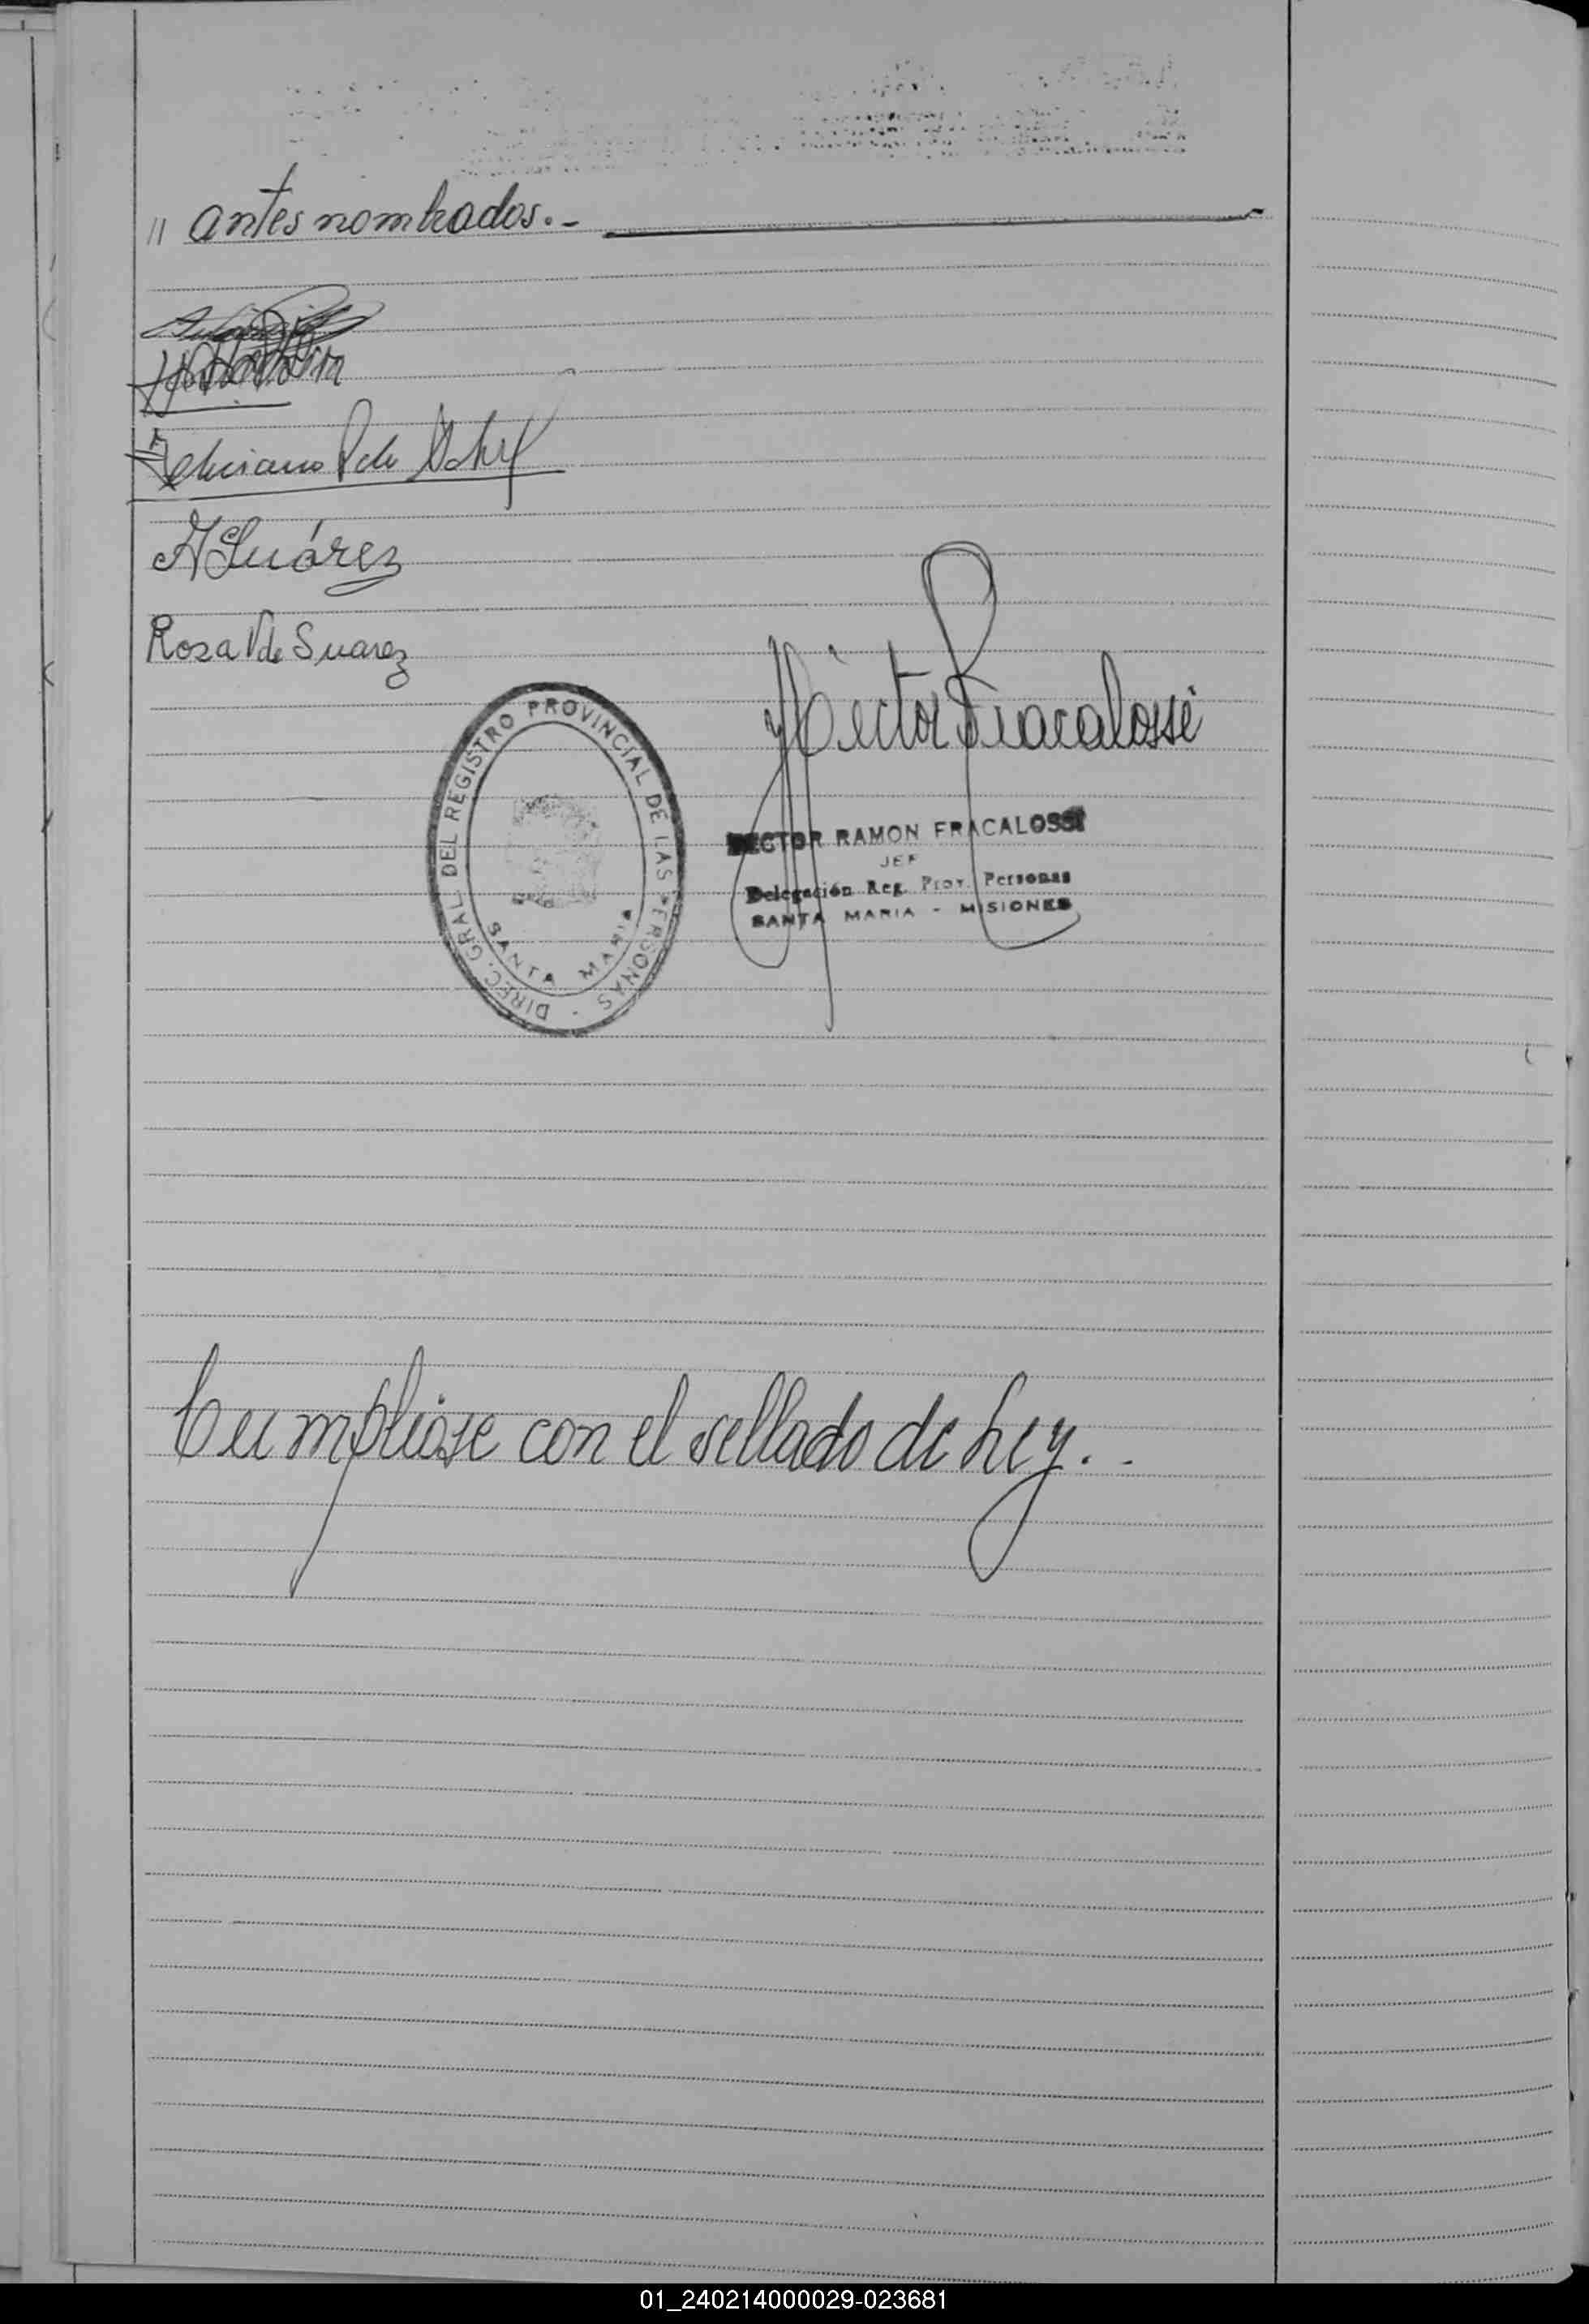 // antes nombrados.-
A Suárez
Rosa V de Suarez
Héctor Fracalossi
DIREC. GRAL. DEL REGISTRO PROVINCIAL DE LAS PERSONAS -
SANTA MARIA
HECTOR RAMON FRACALOSSI
JEF
Delegación Reg. Prov. Personas
SANTA MARIA - MISIONES
Cumplióse con el sellado de Ley. . -
01_240214000029-023681